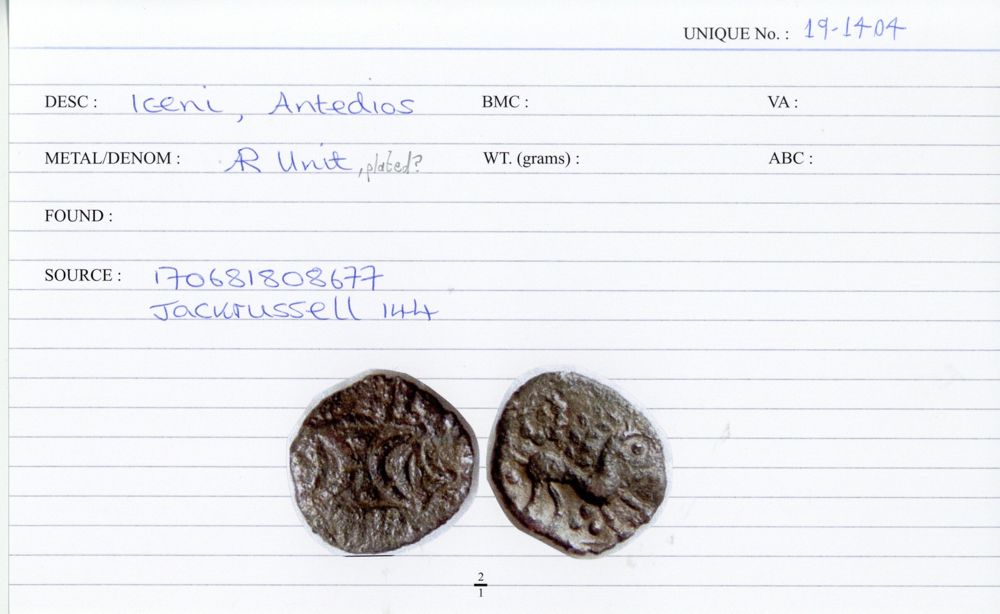 UNIQUE No. : 19-1404
DESC : Iceni, Antedios BMC : VA :
METAL/DENOM : AR Unit, plated? WT. (grams) : ABC :
FOUND :
SOURCE : 170681808677
Jackrussell 144
2
1